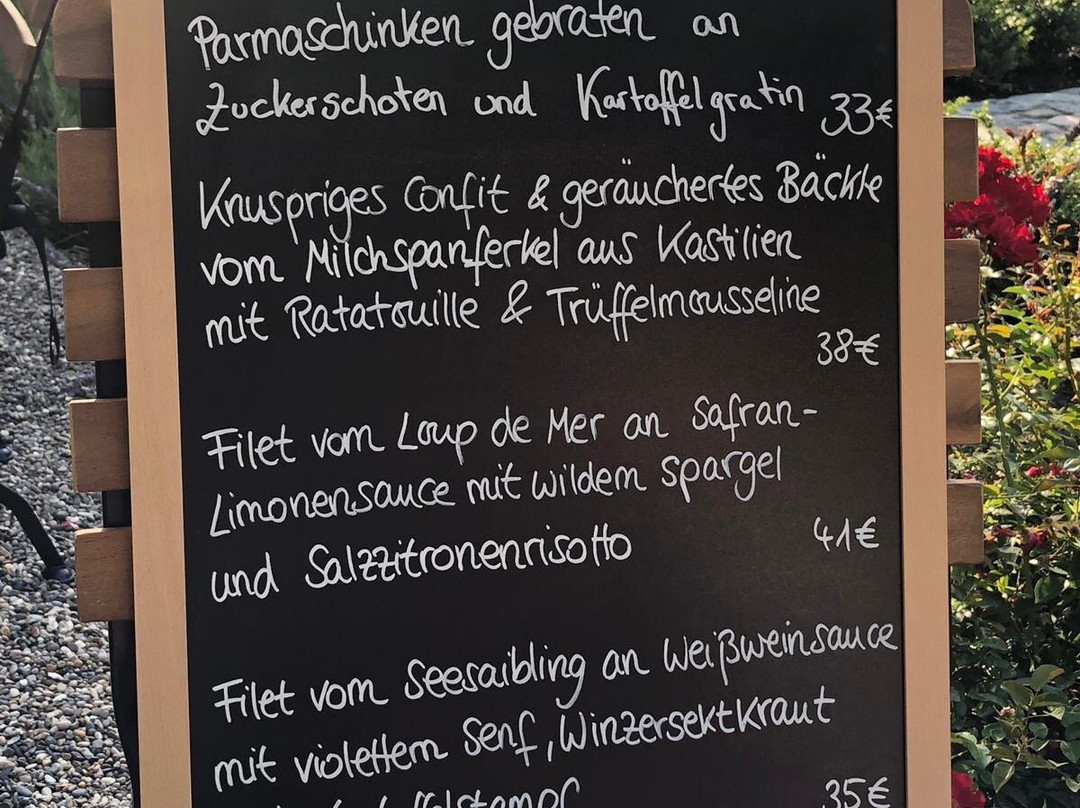 Parmaschinken gebraten an
Zuckerschoten und Kartoffelgratin 33€
Knuspriges Confit & geräuchertes Bäckle
vom Milchspanferkel aus Kastilien
mit Ratatouille & Trüffelmousseline
38€
Filet vom Loup de Mer an Safran-
Limonensauce mit wildem Spargel
und Salzzitronenrisotto 41€
Filet vom Seesaibling an Weißweinsauce
mit violettem Senf, Winzersektkraut
35€